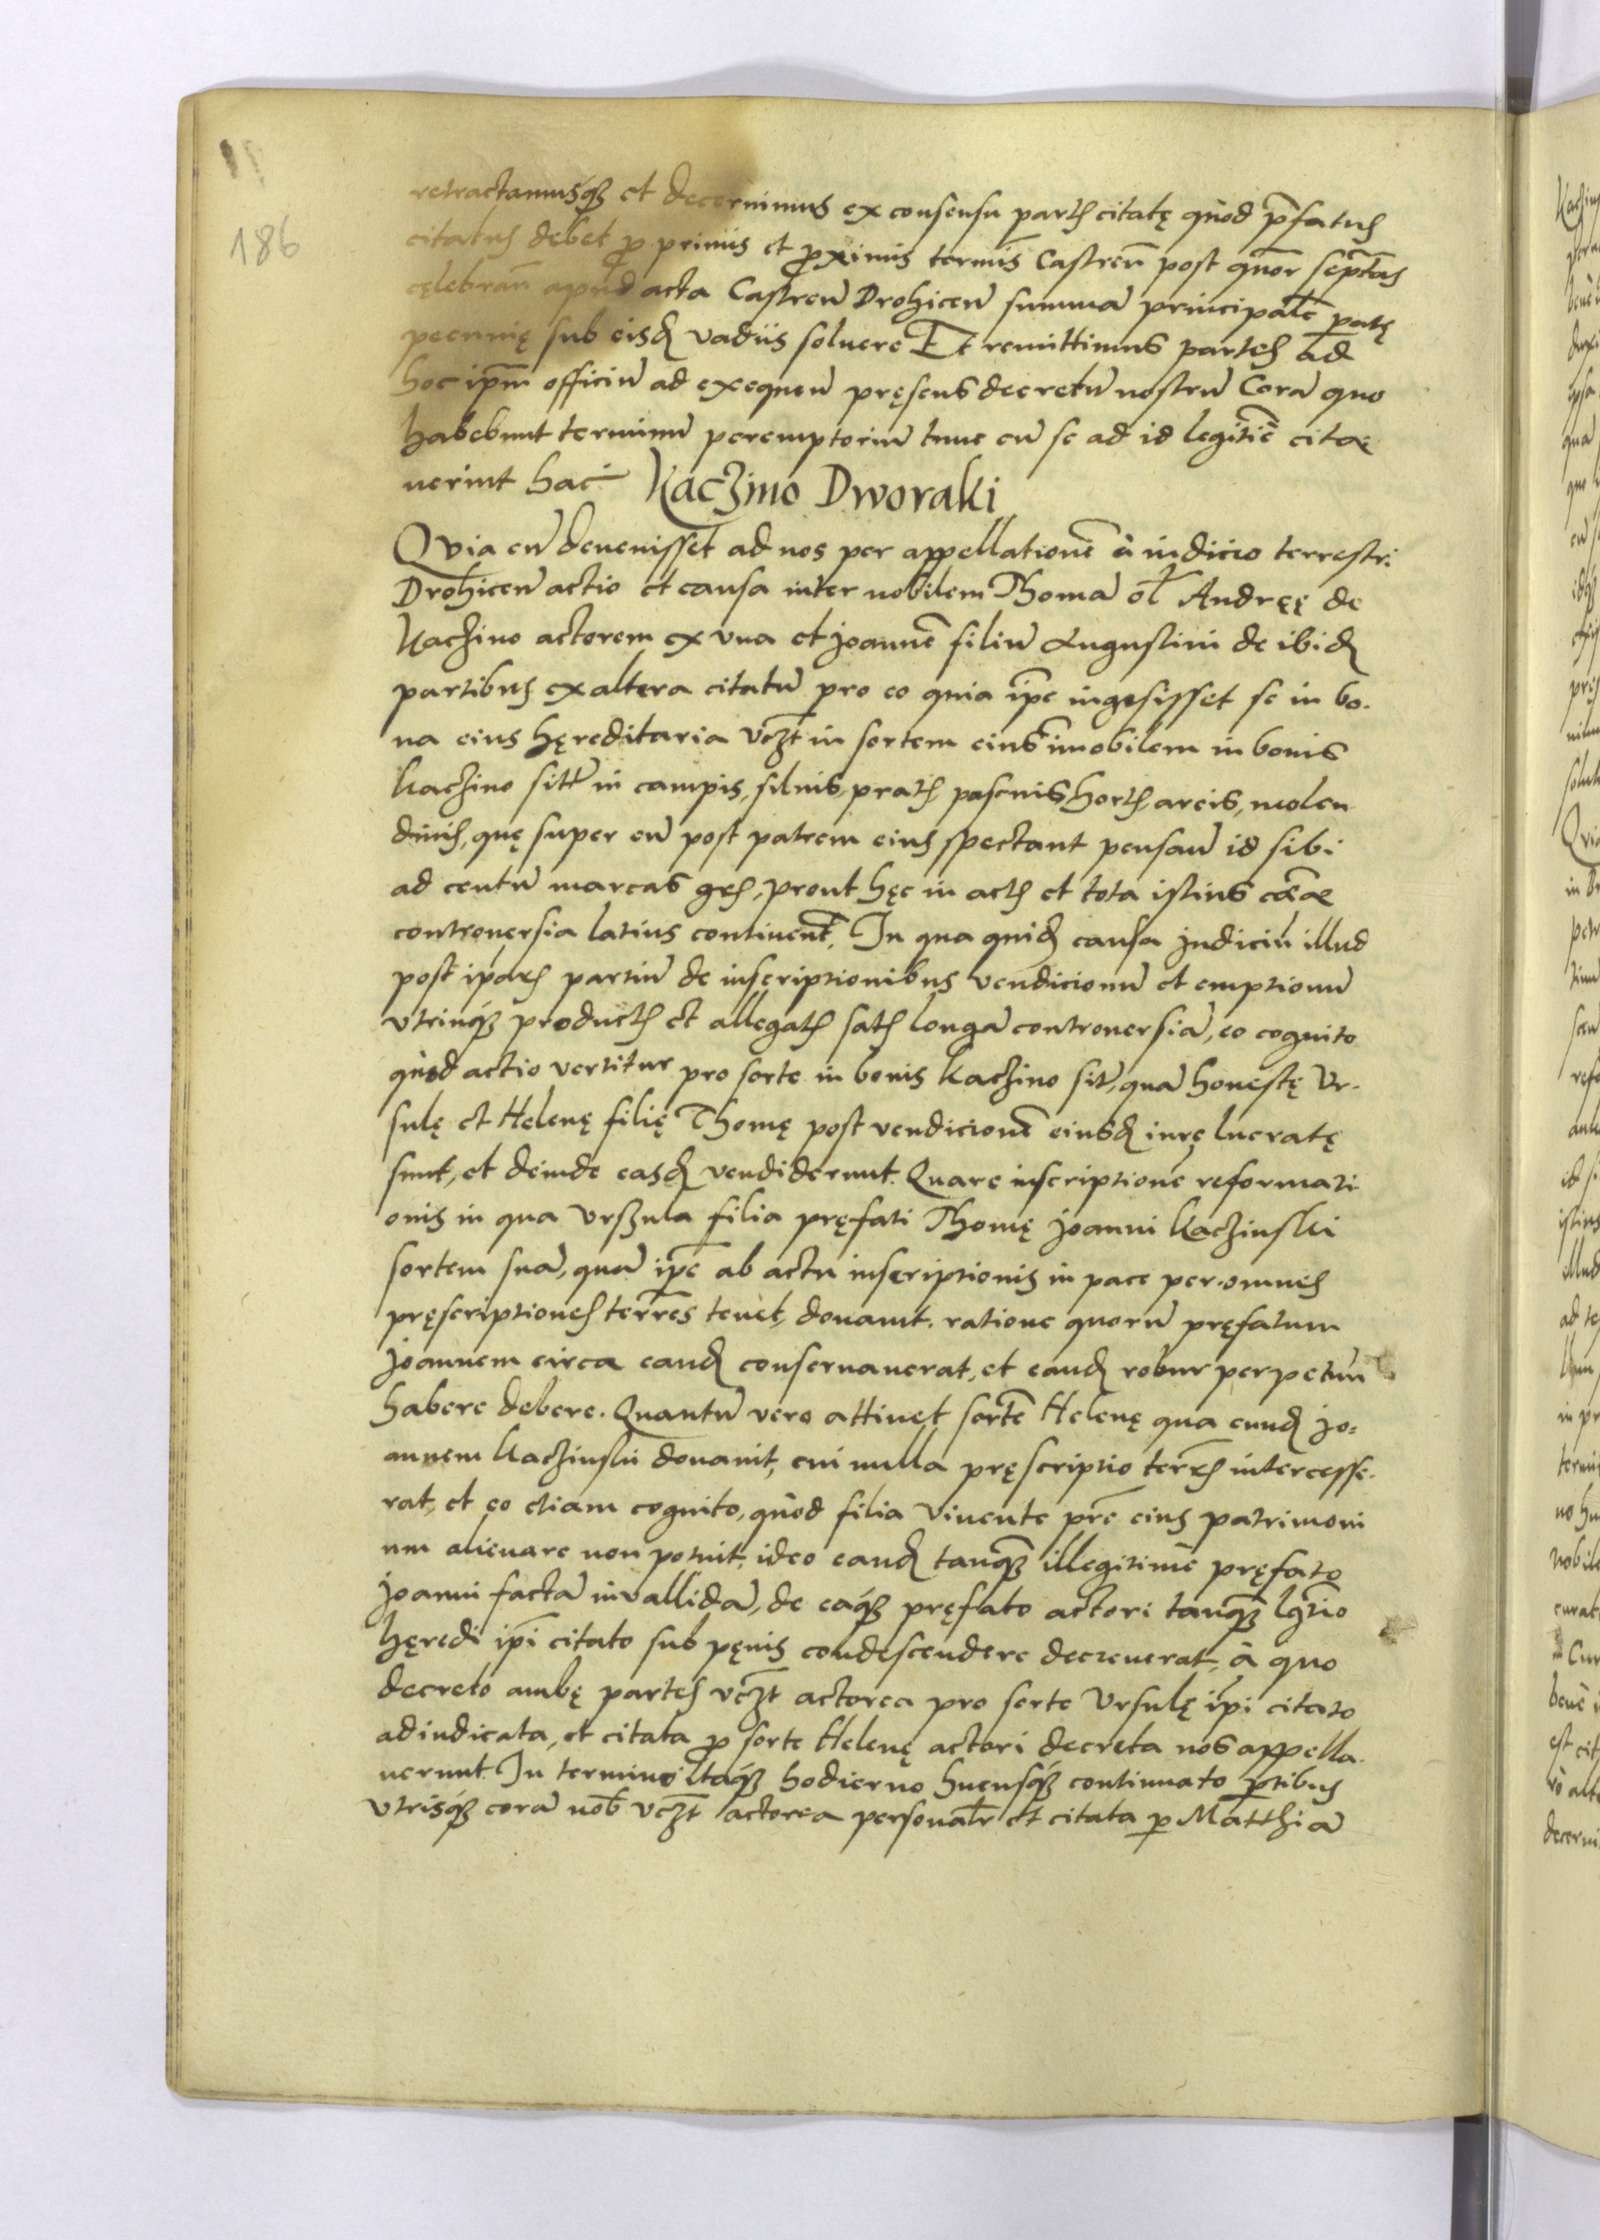 186
retractamusq₃ et decernimus ex consensu partis citatę quod p̄fatus
citatus debet p̱ primis et proximis termīs Castreñ post quor septias
cęlebrañ apud acta Castreñ Drohiceñ summā principalē
pecunię sub eisd vadiis soluere Et remittimus partes ad
hoc ipm̄ officiū ad exequeñ pręsens decretū nostrū Corā quo
habebunt terminū peremptoriū tunc cū se ad id legitiē cita
uerint hac Kaczino Dworaki
Qvia cū deuenisset ad nos per appellationē à iudicio terrestri
Drohiceñ actio et causa inter nobilem Thomā ol Andręę de
Kaczino actorem ex vna et Joannē filiū Augustini de ibid
partibus ex altera citatū pro eo quia ip̄e ingesisset se in bo
na eius hęreditaria vcz̄t in sortem eius īmobilem in bonis
Kaczino sitt̄ in campis, siluis, pratis pascuis, hortis areis, molen
dinis, quę super eū post patrem eius spectant pensañ id sibi
ad centū marcas grs, prout hęc in actis et tota istius cā̄e
controuersia latius continent̄. In qua quid causa judiciū illud
post ipars partiū de inscriptionibus vendicionū et emptionū
vtrinq₃ productis et allegatis satis longā controuersiā, eo cognito
quòd actio vertitur pro sorte in bonis Kaczino sit, quā honestę Vr
sulę et Helenę filię Thomę post vendicionē eiusd iurę lucratę
sunt, et deinde easd vendiderunt. Quare inscriptionē reformati
onis in qua Vrszula filia pręfati Thomę Joanni Kaczinski
sortem suā, quā ip̄e ab actu inscriptionis in pace per omnes
pręscriptiones terr̄es tenet, donauit. ratione quorū pręfatum
Joannem circa eand conseruauerat, et eand robur perpetuū
habere debere. Quantū vero attinet sortē Helenę qua eund Jo=
annem Kaczinski donauit, cui nulla pręscriptio terrs intercesse
rat, et eo etiam cognito, quòd filia viuente pr̄e eius patrimoni
um alienare non potuit, ideo eand tanq₃ illegitimè pręfato
Joanni factā inuallidā, de eaq₃ pręfato actori tanq₃ lgtīo
hęredi ip̄i citato sub pęnis condescendere decreuerat, à quo
decreto ambę partes vcz̄t actorea pro sorte Vrsulę ip̄i citato
adiudicata, et citata p̱ sorte Helenę actori decreta nos appella
uerunt. In termino itaq₃ hodierno hucusq₃ continuato p̱tibus
vtrisq₃ corā nob̄ vcz̄t actorea personalr̄ et citata p̱ Matthiā